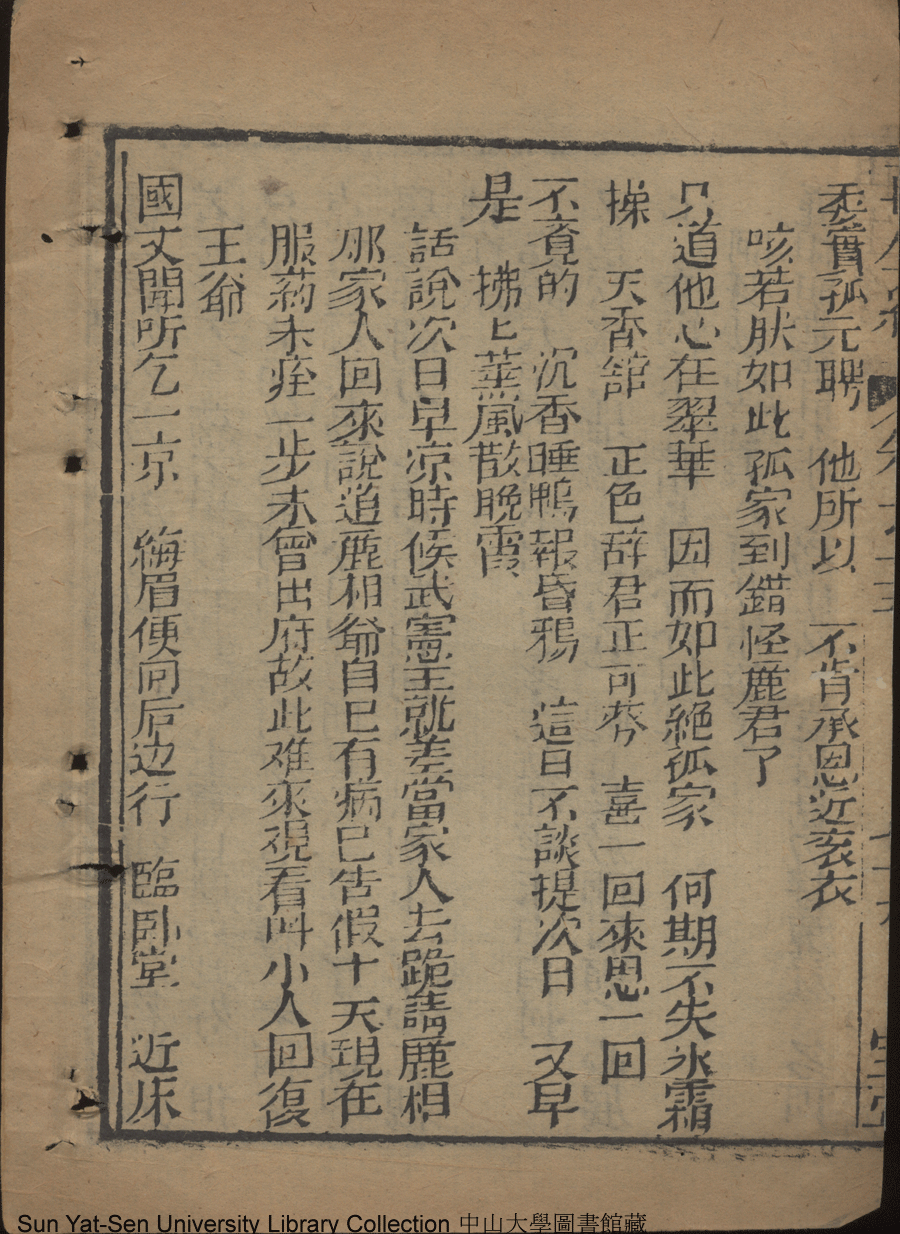 委實孤元聘　他所以　不肯承恩近袞衣
咳若肰如此孤家到錯怪鹿君了
只道他心在翠華　因而如此絕孤家　何期不失氷霜
操　天香舘　正色辞君正可夸　喜一回來思一回
不竟的　沉香睡鴨報昏鴉　這日不談提次日　又早
是　拂上薰風散晚霞
話說次日早凉時候武憲王就差當家人去跪請鹿相
那家人回來說道鹿相爺自己有病已告假十天現在
服药未痊一步未曾出府故此难來視看呌小人回復
王爺
國丈聞听乞一亰　縐眉便向后边行　臨卧堂　近床
Sun Yat-Sen University Library Collection 中山大學圖書館藏